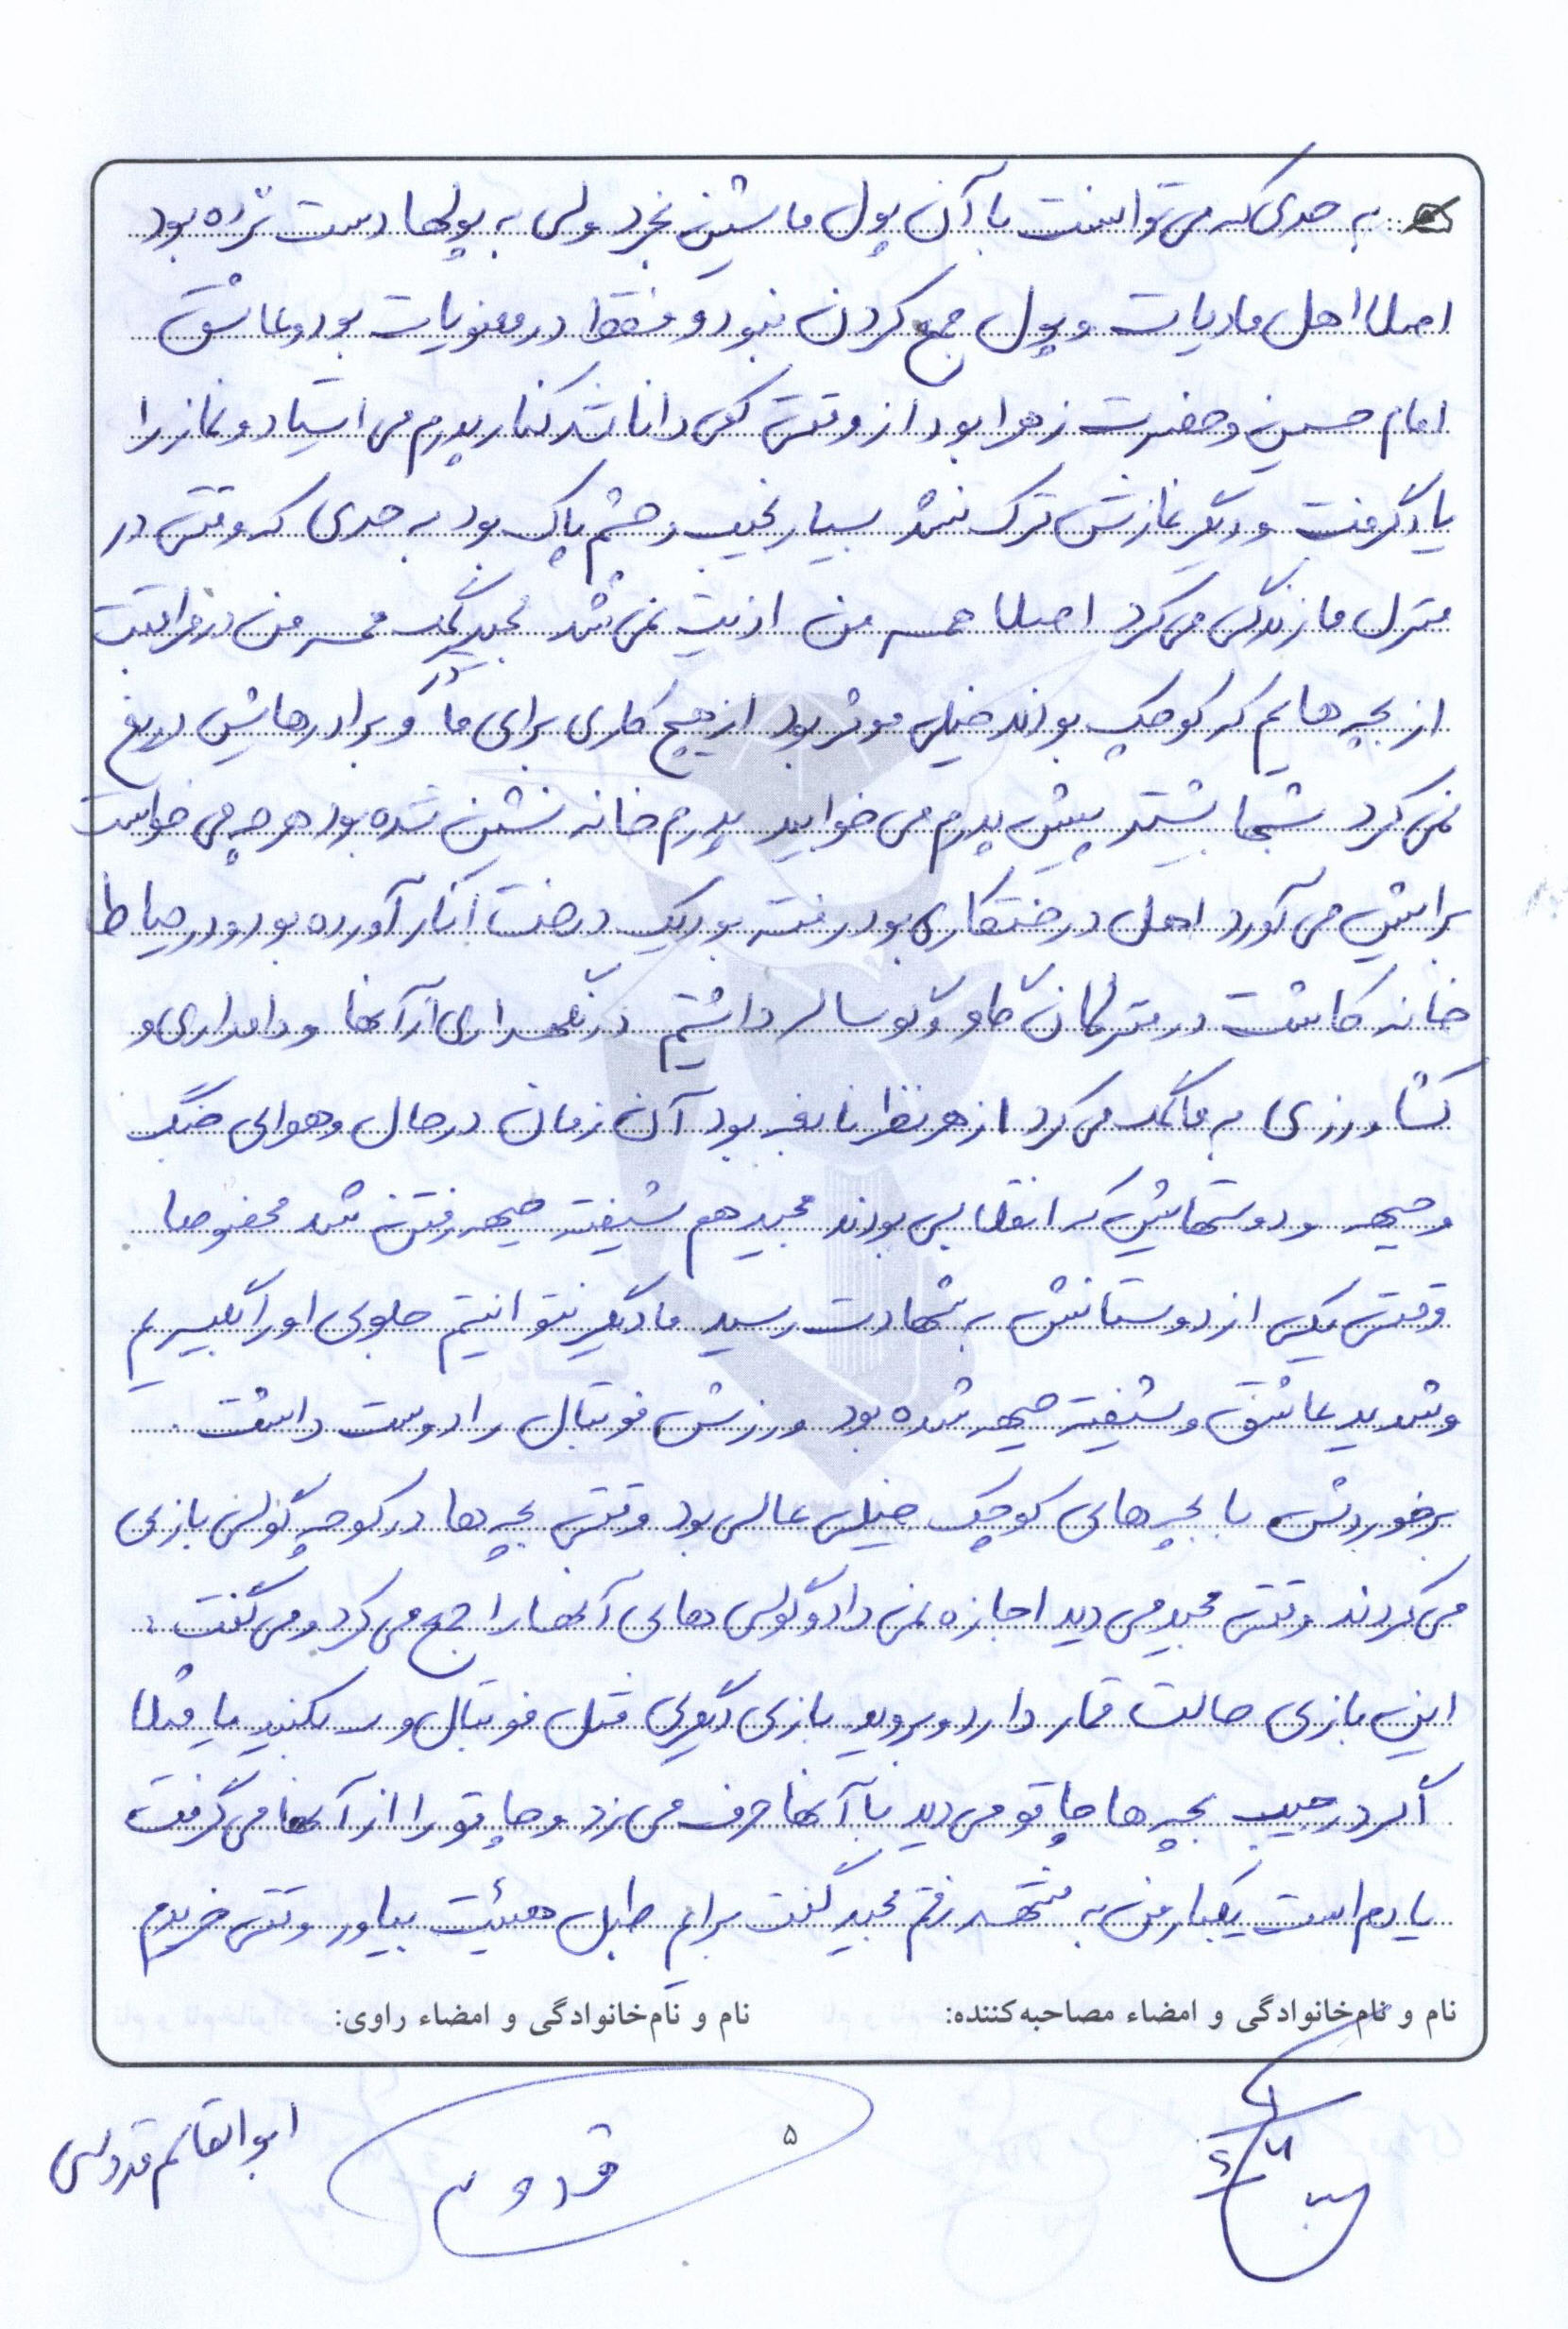 به حدی که می توانست با آن پول ماشین بخرد ولی به پولها دست نزده بود
اصلا اهل مادیات و پول جمع کردن نبود و فقط در معنویات بود و عاشق
امام حسین و حضرت زهرا بود از وقتی کمی دانا شد کنار پدرم می ایستاد و نماز را
یاد گرفت و دیگر نمازش ترک نشد بسیار نجیب و چشم پاک بود به حدی که وقتی در
منزل ما زندگی می کرد اصلا همسر من اذیت نمی شد مجید کمک همسر من در مراقبت
از بچه هایم که کوچک بودند خیلی موثر بود از هیچ کاری برای ما و برادرهایش دریغ
نمی کرد شبها بیشتر پیش پدرم می خوابید پدرم خانه نشین شده بود هر چه می خواست
برایش می آورد اهل درختکاری بود رفته بود یک درخت انار آورده بود و در حیاط
خانه کاشت در منزلمان گاو و گوساله داشتیم در نگهداری از آنها و دامداری و
کشاورزی به ما کمک می کرد از هر نظر نابغه بود آن زمان در حال و هوای جنگ
و جبهه و دوستهایش که انقلابی بودند مجید هم شیفته جبهه رفتن شد مخصوصا
وقتی یکی از دوستانش به شهادت رسید ما دیگر نتوانستیم جلوی او را بگیریم
و شدید عاشق و شیفته جبهه شده بود ورزش فوتبال را دوست داشت
برخوردش با بچه های کوچک خیلی عالی بود وقتی بچه ها در کوچه گولی بازی
می کردند وقتی مجید می دید اجازه نمی داد و گولی های آنها را جمع می کرد و می گفت:
این بازی حالت قمار دارد و بروید بازی دیگری مثل فوتبال و... بکنید یا مثلا
اگر در جیب بچه ها چاقو می دید با آنها حرف می زد و چاقو را از آنها می گرفت
یادم است یکبار من به مشهد رفتم مجید گفت برایم طبل هیئت بیاور وقتی خریدم
نام و نام خانوادگی و امضاء مصاحبه کننده: نام و نام خانوادگی و امضاء راوی:
۵
قدوسی
ابوالقاسم قدوسی